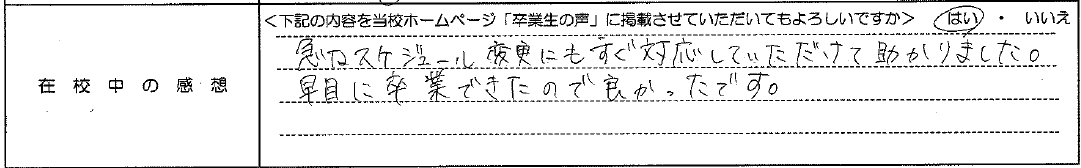 <下記の内容を当校ホームページ「卒業生の声」に掲載させていただいてもよろしいですか> はい ・ いいえ
在校中の感想
急なスケジュール変更にもすぐ対応していただけて助かりました。
早目に卒業できたので良かったです。